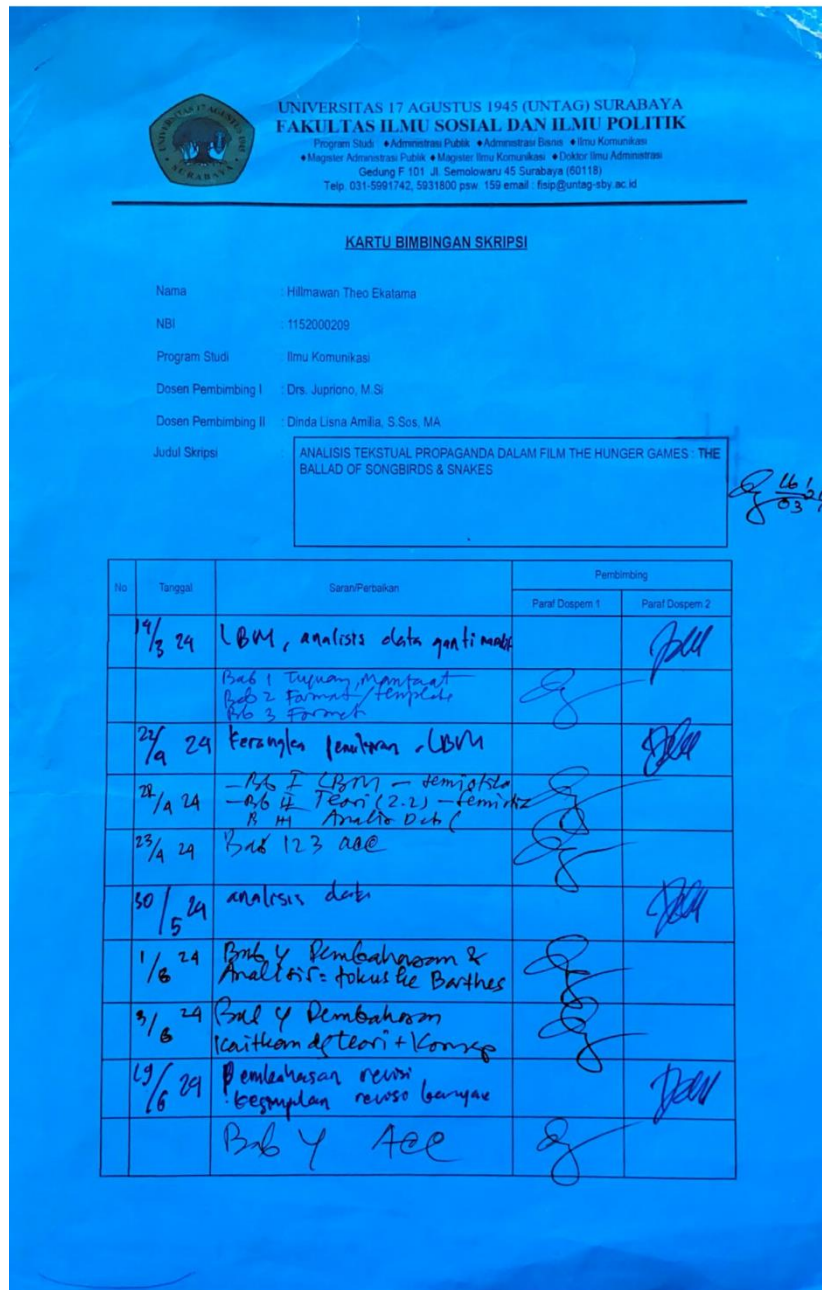 UNIVERSITAS 17 AGUSTUS 1945 (UNTAG) SURABAYA
FAKULTAS ILMU SOSIAL DAN ILMU POLITIK
Program Studi ♦Administrasi Publik ♦Administrasi Bisnis ♦Ilmu Komunikasi
♦Magister Administrasi Publik ♦Magister Ilmu Komunikasi ♦Doktor Ilmu Administrasi
Gedung F 101 Jl. Semolowaru 45 Surabaya (60118)
Telp. 031-5991742, 5931800 psw. 159 email : fisip@untag-sby.ac.id
UNIVERSITAS 17 AGUSTUS 1945
SURABAYA
KARTU BIMBINGAN SKRIPSI
Nama : Hillmawan Theo Ekatama
NBI : 1152000209
Program Studi : Ilmu Komunikasi
Dosen Pembimbing I : Drs. Jupriono, M.Si
Dosen Pembimbing II : Dinda Lisna Amilia, S.Sos, MA
Judul Skripsi : ANALISIS TEKSTUAL PROPAGANDA DALAM FILM THE HUNGER GAMES : THE
BALLAD OF SONGBIRDS & SNAKES
No Tanggal Saran/Perbaikan Pembimbing
Paraf Dospem 1 Paraf Dospem 2
24 LBM, analisis data ganti
Bab 1 Tujuan, Manfaat
Bab 2 Format/template
Bab 3 Format
24 Kerangka LBM
24 Bab I LBM –
Bab II Teori (2.2) –
Analis
23/4 24 Bab 123 acc
30/5 24 analisis data
24 Bab 4 Pembahasan &
Analisis = fokus ke Barthes
24 Bab 4 Pembahasan
kaitkan dg teori + Konsep
24 Pembahasan revisi
banyak
Bab 4 Acc